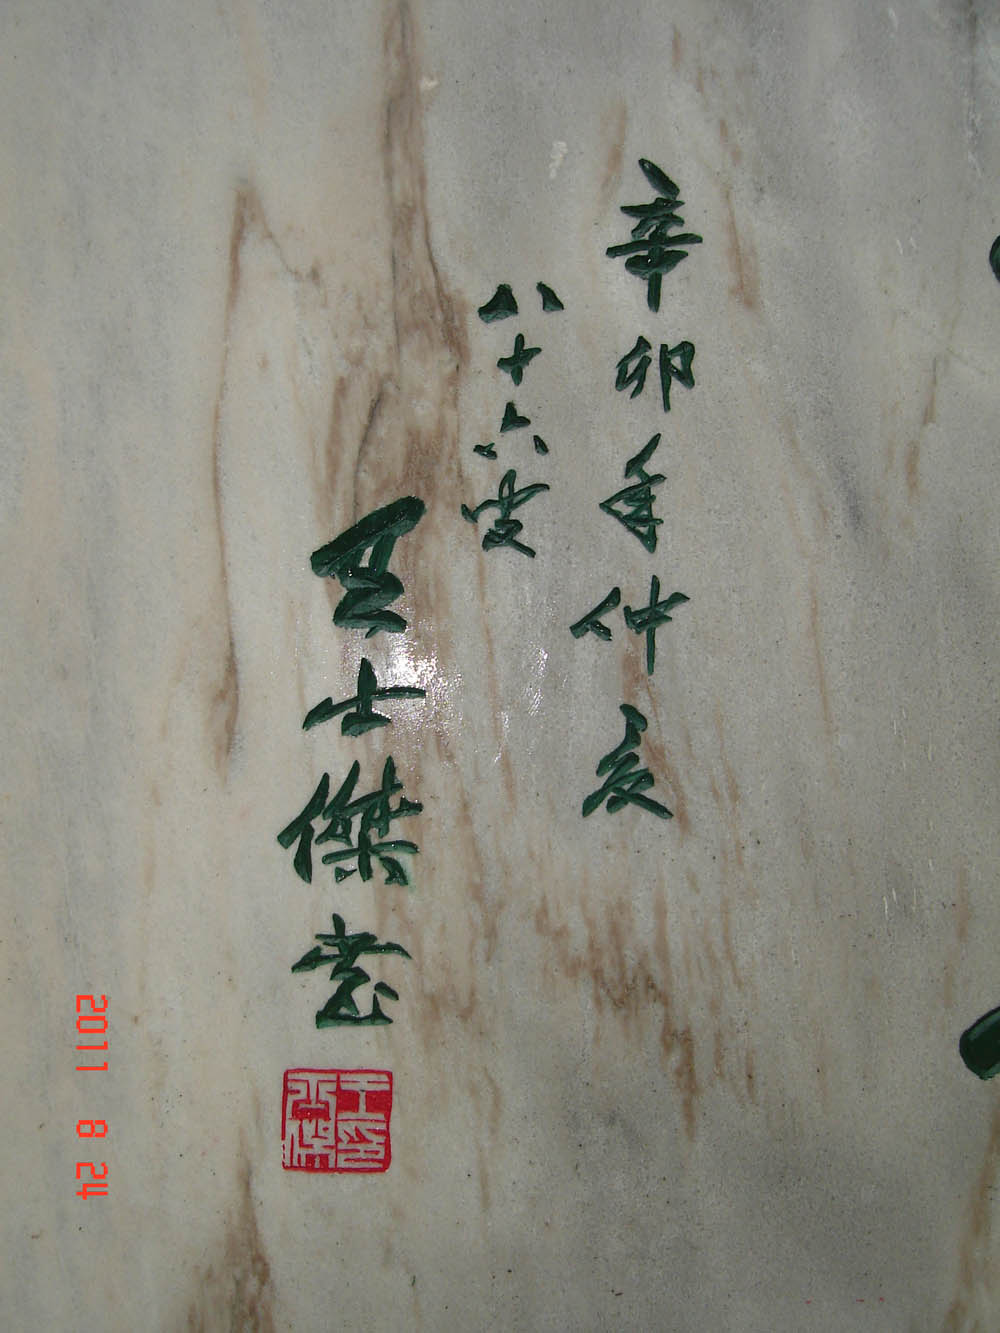 辛卯年仲夏
八十六叟
王士傑書
王印
士傑
2011 8 24